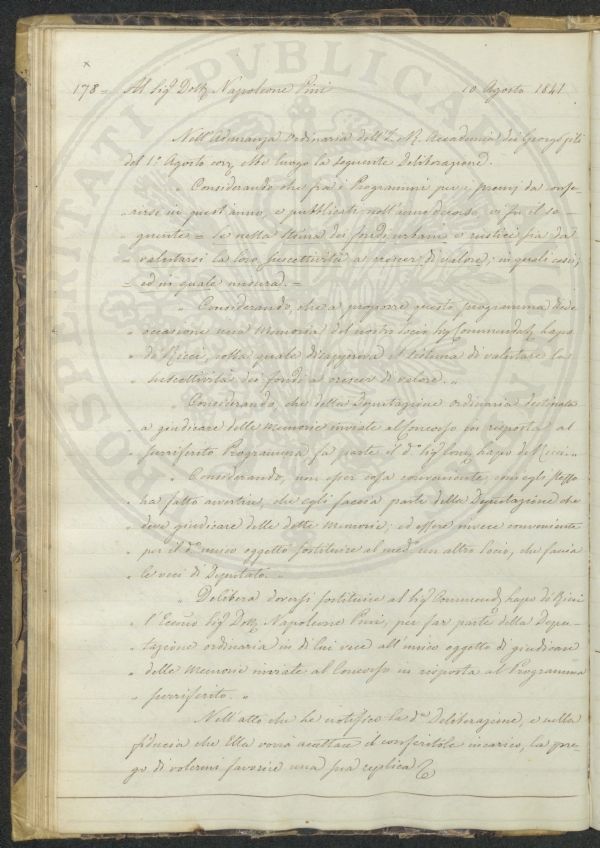 178 = Al Sig.r Dott. Napoleone Pini 10 Agosto 1841
Nell'Adunanza Ordinaria dell'I. R. Accademia dei Georgofili
del 1.° Agosto corr. ebbe luogo la seguente deliberazione.
" Considerando che fra i Programmi per i premj da confe-
" rirsi in quest'anno, e pubblicati nell'anno decorso vi fu il se-
" guente = Se nella stima dei fondi urbani e rustici sia da
" valutarsi la loro suscettività a crescer di valore; in quali casi,
" ed in quale misura. =
" Considerando, che a proporre questo programma diede
" occasione una Memoria del nostro socio Sig. Commendat. Lapo
" de Ricci, nella quale disapprova il sistema di valutare la
" suscettività dei fondi a crescer di valore. "
" Considerando, che della Deputazione ordinaria destinata
" a giudicare delle Memorie inviate al Concorso in risposta al
" surriferito Programma fa parte il d.° Sig. Com. Lapo de Ricci. "
" Considerando, non esser cosa conveniente, com'egli stesso
" ha fatto avvertire, che egli faccia parte della Deputazione che
" deve giudicare delle dette Memorie, ed essere invece conveniente
" per il d.° unico oggetto sostituire al med.° un altro Socio, che faccia
" le veci di Deputato. "
" Delibera doversi sostituire al Sig. Commend. Lapo de Ricci
" l'Eccmo Sig. Dott. Napoleone Pini, per far parte della Depu-
" tazione ordinaria in di lui vece all'unico oggetto di giudicare
" delle Memorie inviate al Concorso in risposta al Programma
" surriferito. "
Nell'atto che le notifico la d.a Deliberazione, e nella
fiducia che Ella vorrà accettare il conferitole incarico, la pre-
go di volermi favorire una sua replica
PROSPERITATI PUBLICAE